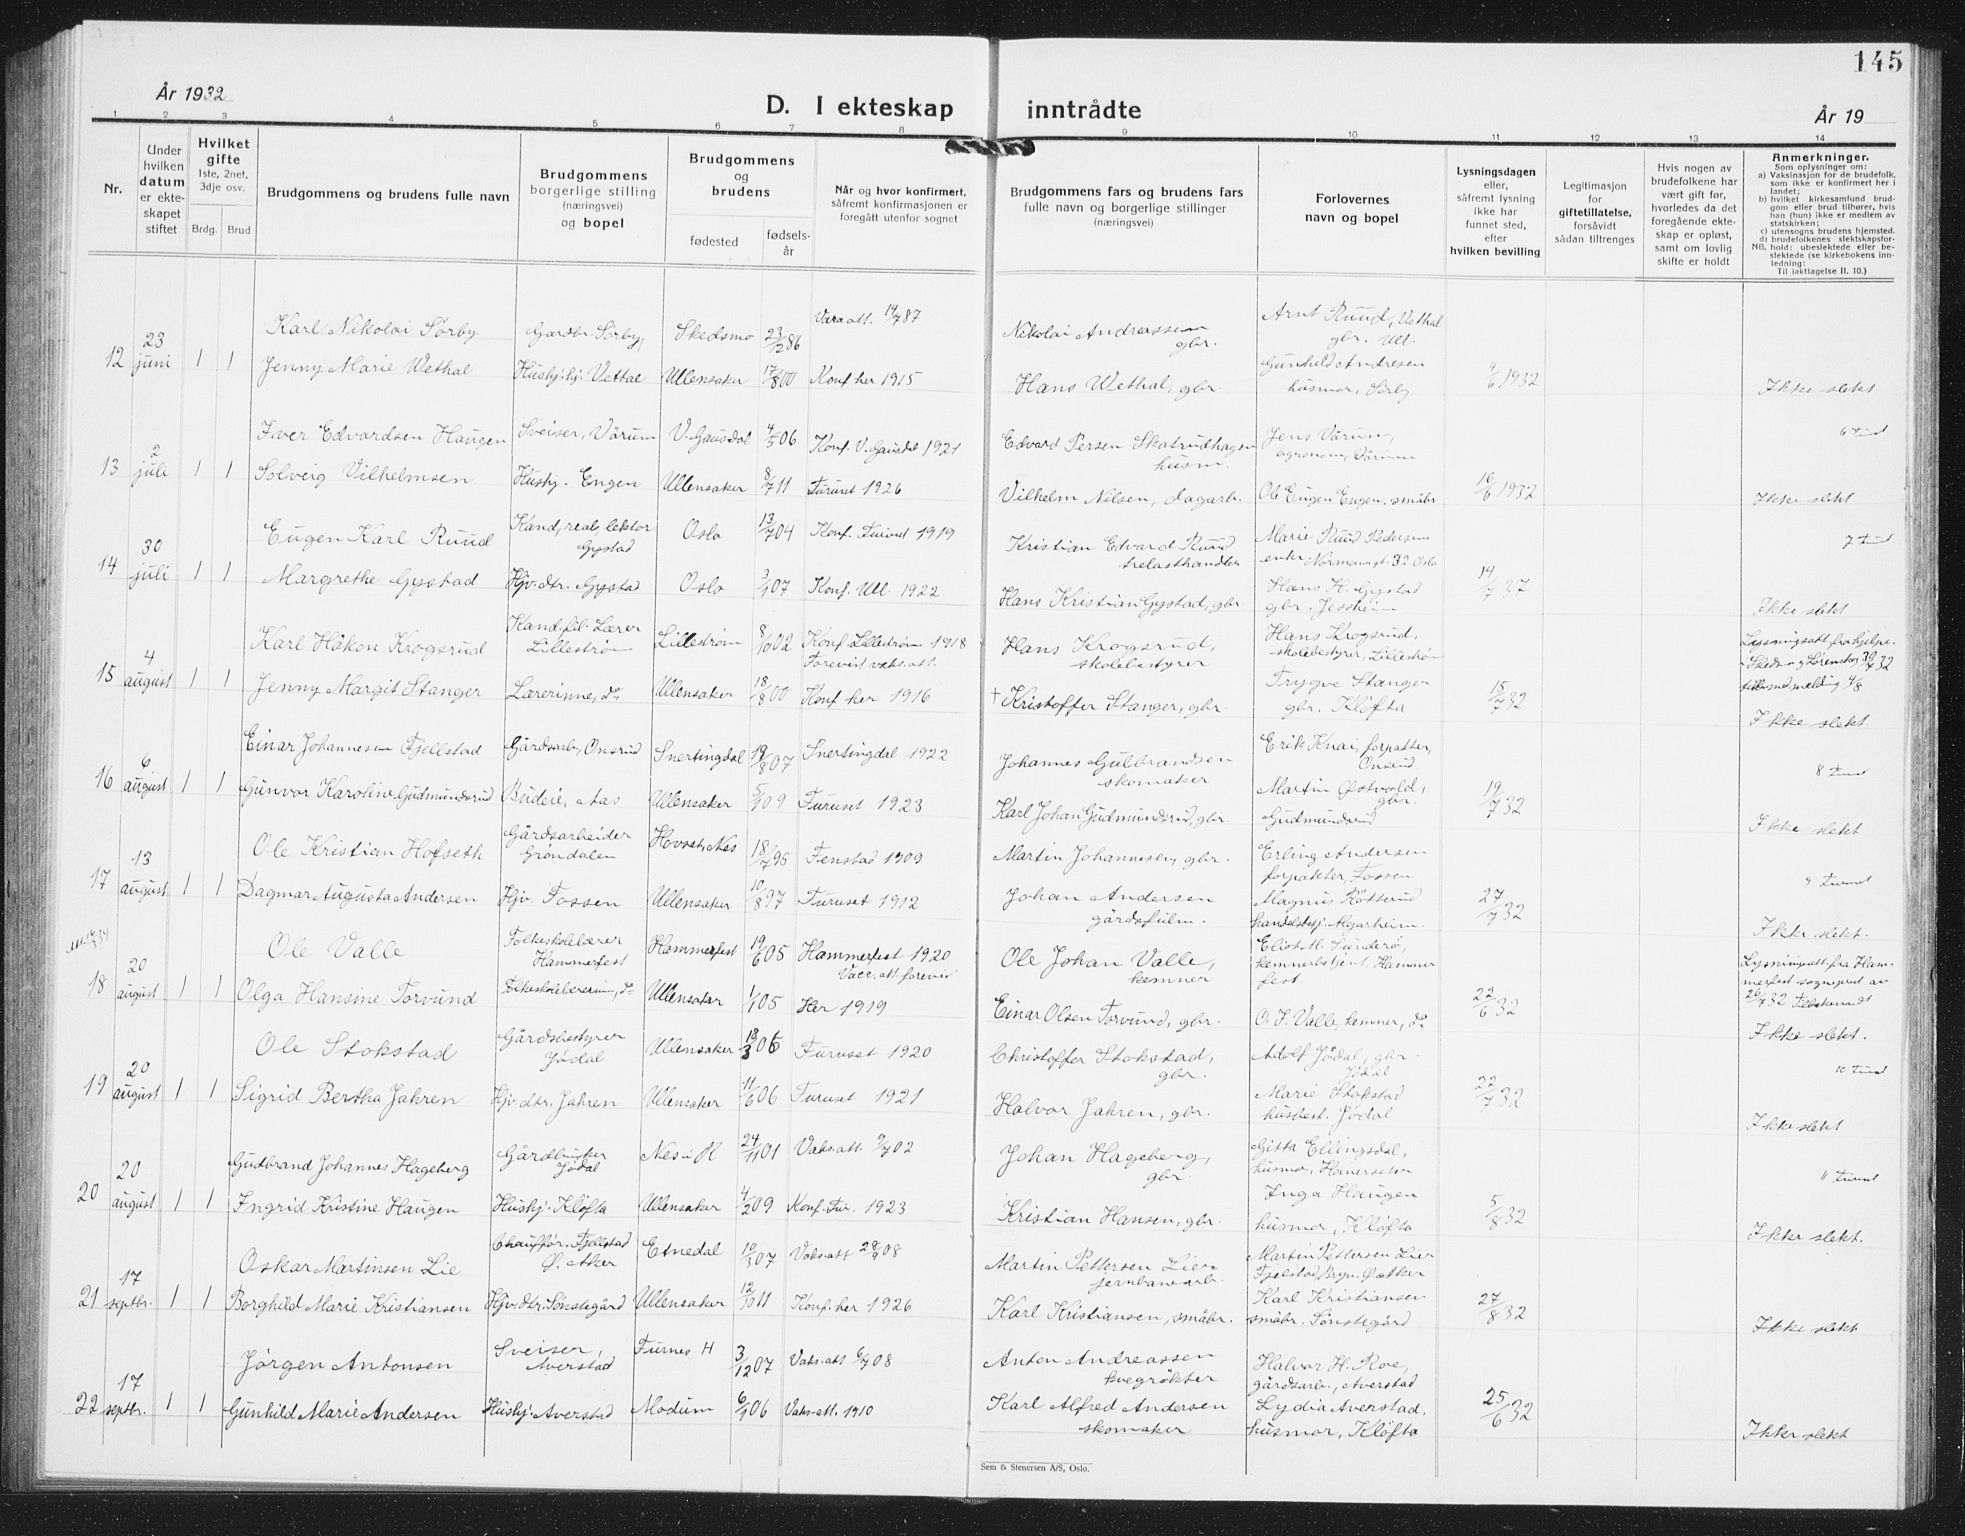 145
År 1932
D. I ekteskap inntrådte
År 19
1 2 3 4 5 6 7 8 9 10 11 12 13 14
Nr.
Under hvilken datum er ekteskapet stiftet
Hvilket gifte 1ste, 2net, 3dje osv.
Brdg. Brud
Brudgommens og brudens fulle navn
Brudgommens borgerlige stilling (næringsvei) og bopel
Brudgommens og brudens
fødested
fødselsår
Når og hvor konfirmert, såfremt konfirmasjonen er foregått utenfor sognet
Brudgommens fars og brudens fars fulle navn og borgerlige stillinger (næringsvei)
Forlovernes navn og bopel
Lysningsdagen eller, såfremt lysning ikke har funnet sted, efter hvilken bevilling
Legitimasjon for giftetillatelse, forsåvidt sådan tiltrenges
Hvis nogen av brudefolkene har vært gift før, hvorledes da det foregående ekteskap er opløst, samt om lovlig skifte er holdt
Anmerkninger.
Som oplysninger om:
a) Vaksinasjon for de brudefolk, som ikke er konfirmert her i landet;
b) hvilket kirkesamfund brudgom eller brud tilhører, hvis han (hun) ikke er medlem av statskirken;
c) utensogns brudens hjemsted.
d) brudefolkenes slektskapsforhold: ubeslektede eller beslektede (se kirkebokens innledning:
NB.
Til iakttagelse II. 10.)
12 23 juni 1 1
Karl Nikolai Sörby Gardbr. Sörby, Skedsmo 23/12 86 Vara att. 14/7 87 Nikolai Andreassen gbr. Arnt Ruud, Vethal gbr. Ull.
Jenny Marie Wethal Hushj. hj. Vettal Ullensaker 17/8 00 Konf her 1915 Hans Wethal, gbr. Gunhild Andresen husmor, Sörby 4/6 1932 Ikke slekt
13 2 juli 1 1
Iver Edvardsen Haugen Sveiser, Värum V. Gausdal 4/5 06 Konf. V. Gausdal 1921 Edvard Persen Skatrudhagen husm. Jens Värum, agronom, Värum
Solveig Vilhelmsen Hushj. Engen Ullensaker 8/7 11 Furuset 1926 Vilhelm Nilsen, dagarb. Ole Eugen Engen, småbr. 16/6 1932 Ikke slekt
14 30 juli 1 1
Eugen Karl Ruud Kand. real, lektor Gystad Oslo 13/7 04 Konf. Furuset 1919 Kristian Edvard Ruud trelasthandler Marie Ruud Pedersen enke. Normannsgt. 32 Oslo
Margrethe Gystad Hjv. dtr. Gystad Oslo 3/1 07 Konf. Ull. 1922 Hans Kristian Gystad, gbr. Hans H. Gystad gbr. Jessheim 14/7 37 Ikke slekt
15 4 august 1 1
Karl Håkon Krogsrud Kand. fil. Lærer Lilleström Lilleström 8/10 02 Konf. Lilleström 1918 Forevist vaks. att. Hans Krogsrud, skolebestyrer Hans Krogsrud, skolebestyrer, Lilleström
Jenny Margit Stanger Lærerinne, do Ullensaker 18/8 00 Konf her 1916 † Kristoffer Stanger, gbr. Trygve Stanger gbr. Klöfta 15/7 32 Ikke slekt
16 6 august 1 1
Einar Johannesen Fjellstad Gårdsarb, Onsrud Snertingdal 19/8 07 Snertingdal 1922 Johannes Gulbrandsen skomaker Erik Knai, forpakter, Onsrud 8 Furuset
Gunvor Karoline Gudmundsrud Budeie, Aas Ullensaker 5/1 09 Furuset 1923 Karl Johan Gudmundsrud, gbr. Martin Østvold, gbr. Gudmundsrud 19/7 32 Ikke slekt
17 13 august 1 1
Ole Kristian Hofseth Gårdsarbeider Gröndalen Hovset, Nes 18/7 95 Fenstad 1909 Martin Johannesen, gbr. Erling Andersen forpakter, Fossen
Dagmar Augusta Andersen Hjv. Fossen Ullensaker 10/8 97 Furuset 1912 Johan Andersen gårdsfulm. Magnus Röttrud Algarheim. 27/7 32 Ikke slekt.
18 20 august 1 1
Ole Valle Folkeskolelærer Hammerfest Hammerfest 19/6 05 Hammerfest 1920 Vacc. att. forevist Ole Johan Valle, kemner kemnerbetjent, Hammerfest
Olga Hansine Torvund Folkeskolelærerinne, do Ullensaker 1/1 05 Her 1919 Einar Olsen Torvund, gbr. O. J. Valle, kemner, do 22/6 32 Ikke slekt.
19 20 august 1 1
Ole Stokstad Gårdsbestyrer Jödal Ullensaker 18/3 06 Furuset 1920 Christoffer Stokstad, gbr. Adolf Jödal, gbr. Jödal
Sigrid Bertha Jahren Hjv. dtr. Jahren Ullensaker 11/6 06 Furuset 1921 Halvor Jahren, gbr. Marie Stokstad husbest. Jödal 22/7 32 Ikke slekt
20 20 august 1 1
Gudbrand Johannes Hageberg Jödal Nes i H 24/11 01 Vaks. att. 9/7 02 Johan Hageberg, gbr. Gitta Ellingsdal, husmor,
Ingrid Kristine Haugen Hushj. Klöfta Ullensaker 4/2 09 Konf. Fur. 1923 Kristian Hansen, gbr. Inga Haugen husmor, Klöfta 5/8 32 Ikke slekt.
21 17 septbr. 1 1
Oskar Martinsen Lie Chauffør, Fjellstad Ø. Aker Etnedal 10/3 07 Vaks. att 28/9 08 Martin Pettersen Lier jernbanearb. Martin Pettersen Lier
Borghild Marie Kristiansen Hjv. dtr. Sönstegård Ullensaker 12/10 11 Konf. her 1926 Karl Kristiansen, småbr. Karl Kristiansen småbr. Sönstegård 27/8 32 Ikke slekt
22 17 septbr. 1 1
Jörgen Antonsen Sveiser, Averstad Furnes H 3/12 07 Vaks. att 6/7 08 Anton Andreassen kvegrökter Halvor H. Roe, gårdsarb., Averstad
Gunhild Marie Andersen Hushj. Averstad Modum 6/1 06 Vaks. att. 1910 Karl Alfred Andersen skomaker Lydia Averstad, husmor, Klöfta 25/6 32 Ikke slekt
Sem & Stenersen A/S, Oslo.